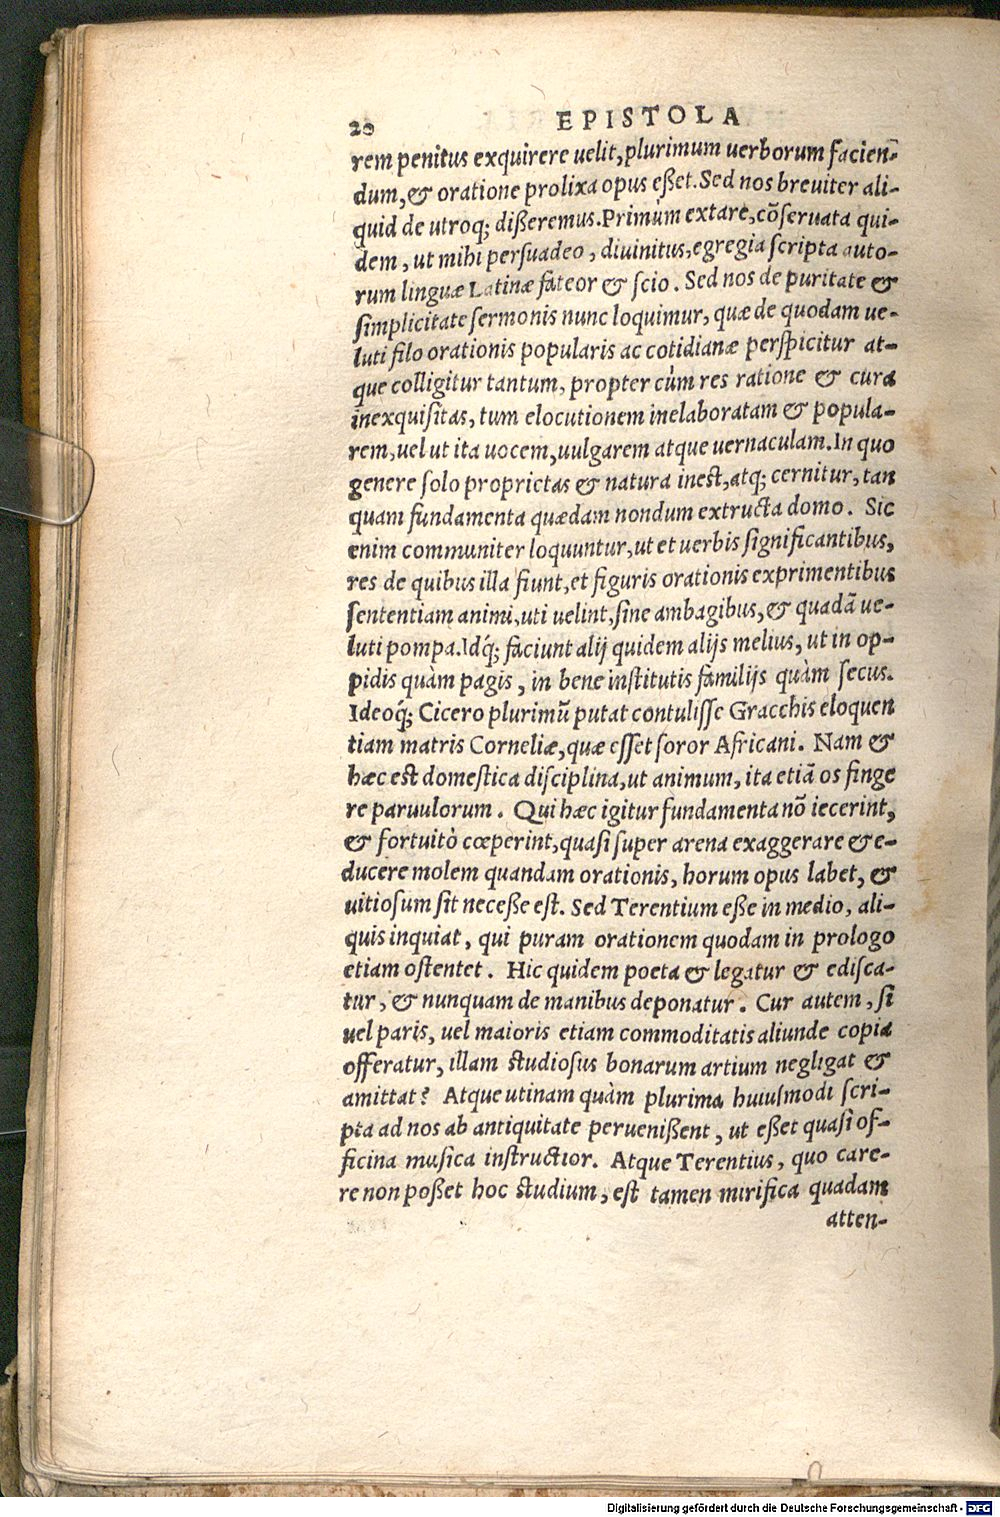 20 EPISTOLA
rem penitus exquirere uelit, plurimum uerborum facien-
dum, & oratione prolixa opus eßet. Sed nos breuiter ali-
quid de utroq; dißeremus. Primùm extare, cōſeruata qui-
dem, ut mihi perſuadeo, diuinitus, egregia ſcripta auto-
rum linguæ Latinæ fateor & ſcio. Sed nos de puritate &
ſimplicitate ſermonis nunc loquimur, quæ de quodam ue-
luti filo orationis popularis ac cotidianæ perſpicitur at-
que colligitur tantum, propter cùm res ratione & cura
inexquiſitas, tum elocutionem inelaboratam & popula-
rem, uel ut ita uocem, uulgarem atque uernaculam. In quo
genere ſolo proprietas & natura ineſt, atq; cernitur, tan
quam fundamenta quædam nondum extructa domo. Sic
enim communiter loquuntur, ut et uerbis ſignificantibus,
res de quibus illa fiunt, et figuris orationis exprimentibus
ſententiam animi, uti uelint, ſine ambagibus, & quadā ue-
luti pompa. Idq́; faciunt alij quidem alijs melius, ut in op-
pidis quàm pagis, in bene inſtitutis familijs quàm ſecus.
Ideoq́; Cicero plurimū putat contuliſſe Gracchis eloquen
tiam matris Corneliæ, quæ eſſet ſoror Africani. Nam &
hæc eſt domeſtica diſciplina, ut animum, ita etiā os finge
re paruulorum. Qui hæc igitur fundamenta nō iecerint,
& fortuitò cœperint, quaſi ſuper arena exaggerare & e-
ducere molem quandam orationis, horum opus labet, &
uitioſum ſit neceße eſt. Sed Terentium eße in medio, ali-
quis inquiat, qui puram orationem quodam in prologo
etiam oſtentet. Hic quidem poeta & legatur & ediſca-
tur, & nunquam de manibus deponatur. Cur autem, ſi
uel paris, uel maioris etiam commoditatis aliunde copia
offeratur, illam ſtudioſus bonarum artium negligat &
amittat? Atque utinam quàm plurima huiuſmodi ſcri-
pta ad nos ab antiquitate perueniſſent, ut eßet quaſi of-
ficina muſica inſtructior. Atque Terentius, quo care-
re non poßet hoc ſtudium, eſt tamen mirifica quadam
atten-
Digitalisierung gefördert durch die Deutsche Forschungsgemeinschaft - DFG